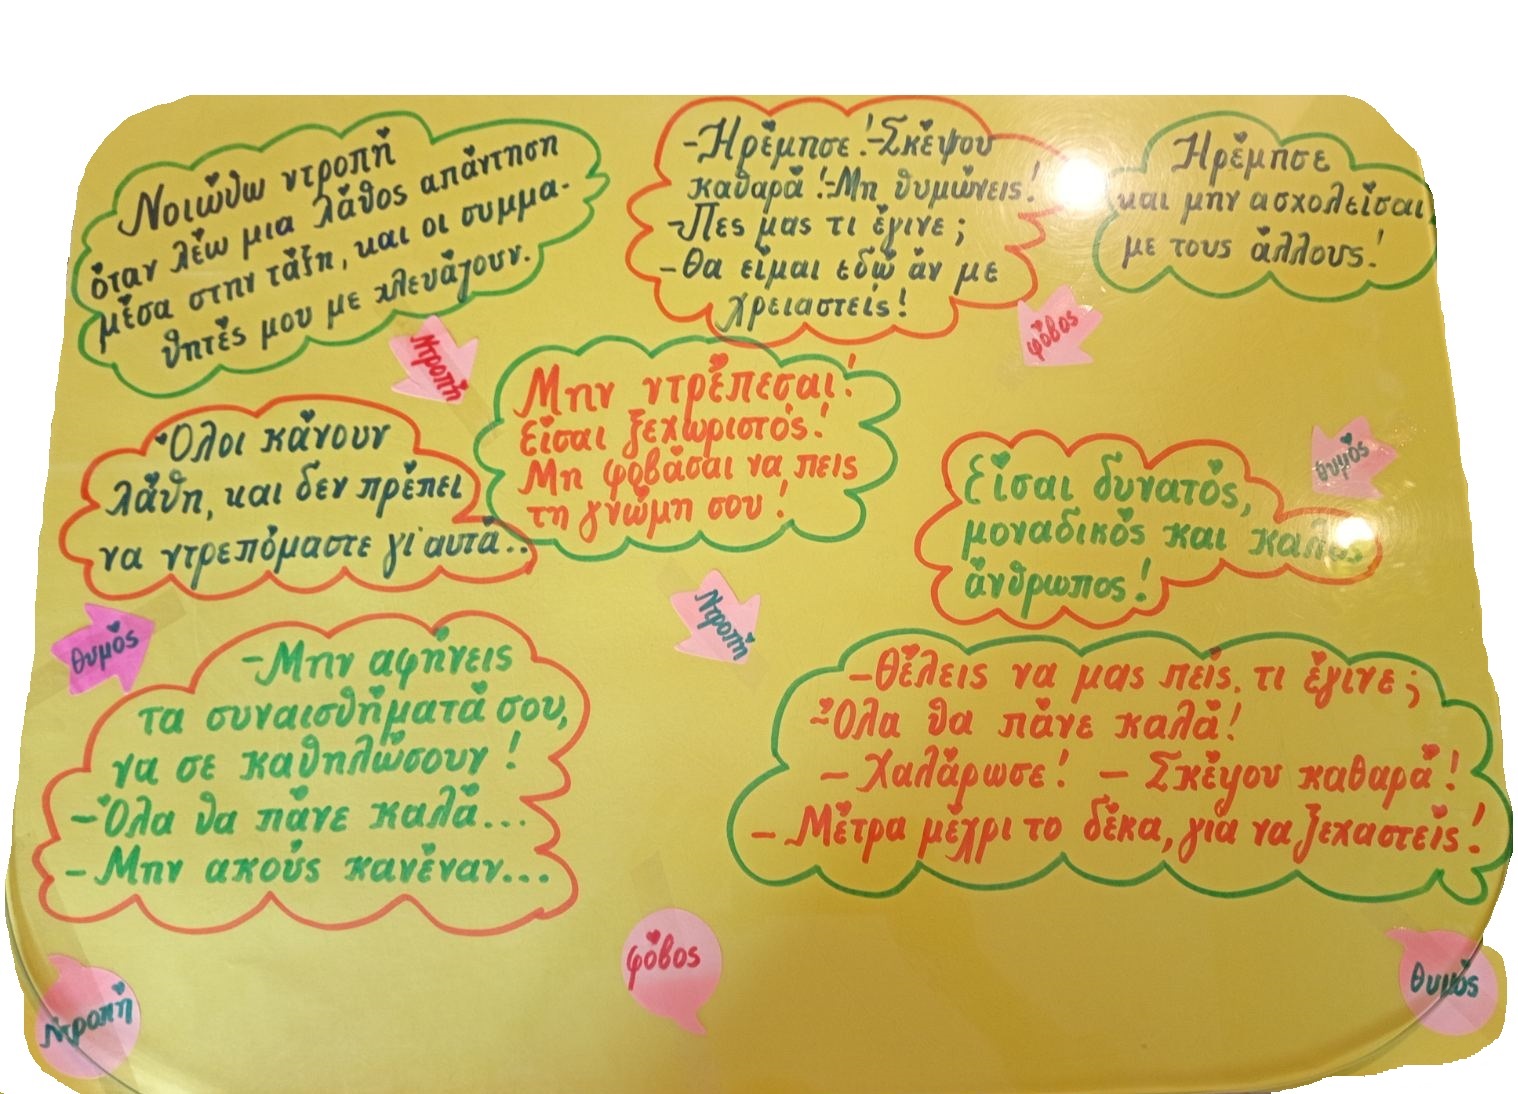 Νοιώθω ντροπή
όταν λέω μια λάθος απάντηση
μέσα στην τάξη, και οι συμμα-
θητές μου με χλευάζουν.
-Ηρέμησε!-Σκέψου
καθαρά!-Μη θυμώνεις!
-Πες μας τι έγινε;
-Θα είμαι εδώ άν με
χρειαστείς!
Ηρέμησε
και μην ασχολείσαι
με τους άλλους!
Ντροπή
φόβος
Μην ντρέπεσαι!
Είσαι ξεχωριστός!
Μη φοβάσαι να πεις
τη γνώμη σου!
Όλοι κάνουν
λάθη, και δεν πρέπει
να ντρεπόμαστε γι'αυτά..
θυμός
Είσαι δυνατός,
μοναδικός και καλός
άνθρωπος!
θυμός
Ντροπή
-Μην αφήνεις
τα συναισθήματά σου,
να σε καθηλώσουν!
-Όλα θα πάνε καλά...
-Μην ακούς κανέναν...
-Θέλεις να μας πείς, τι έγινε;
-Όλα θα πάνε καλά!
- Χαλάρωσε! - Σκέψου καθαρά!
- Μέτρα μέχρι το δέκα, γιά να ξεχαστείς!
Ντροπή
φόβος
θυμός